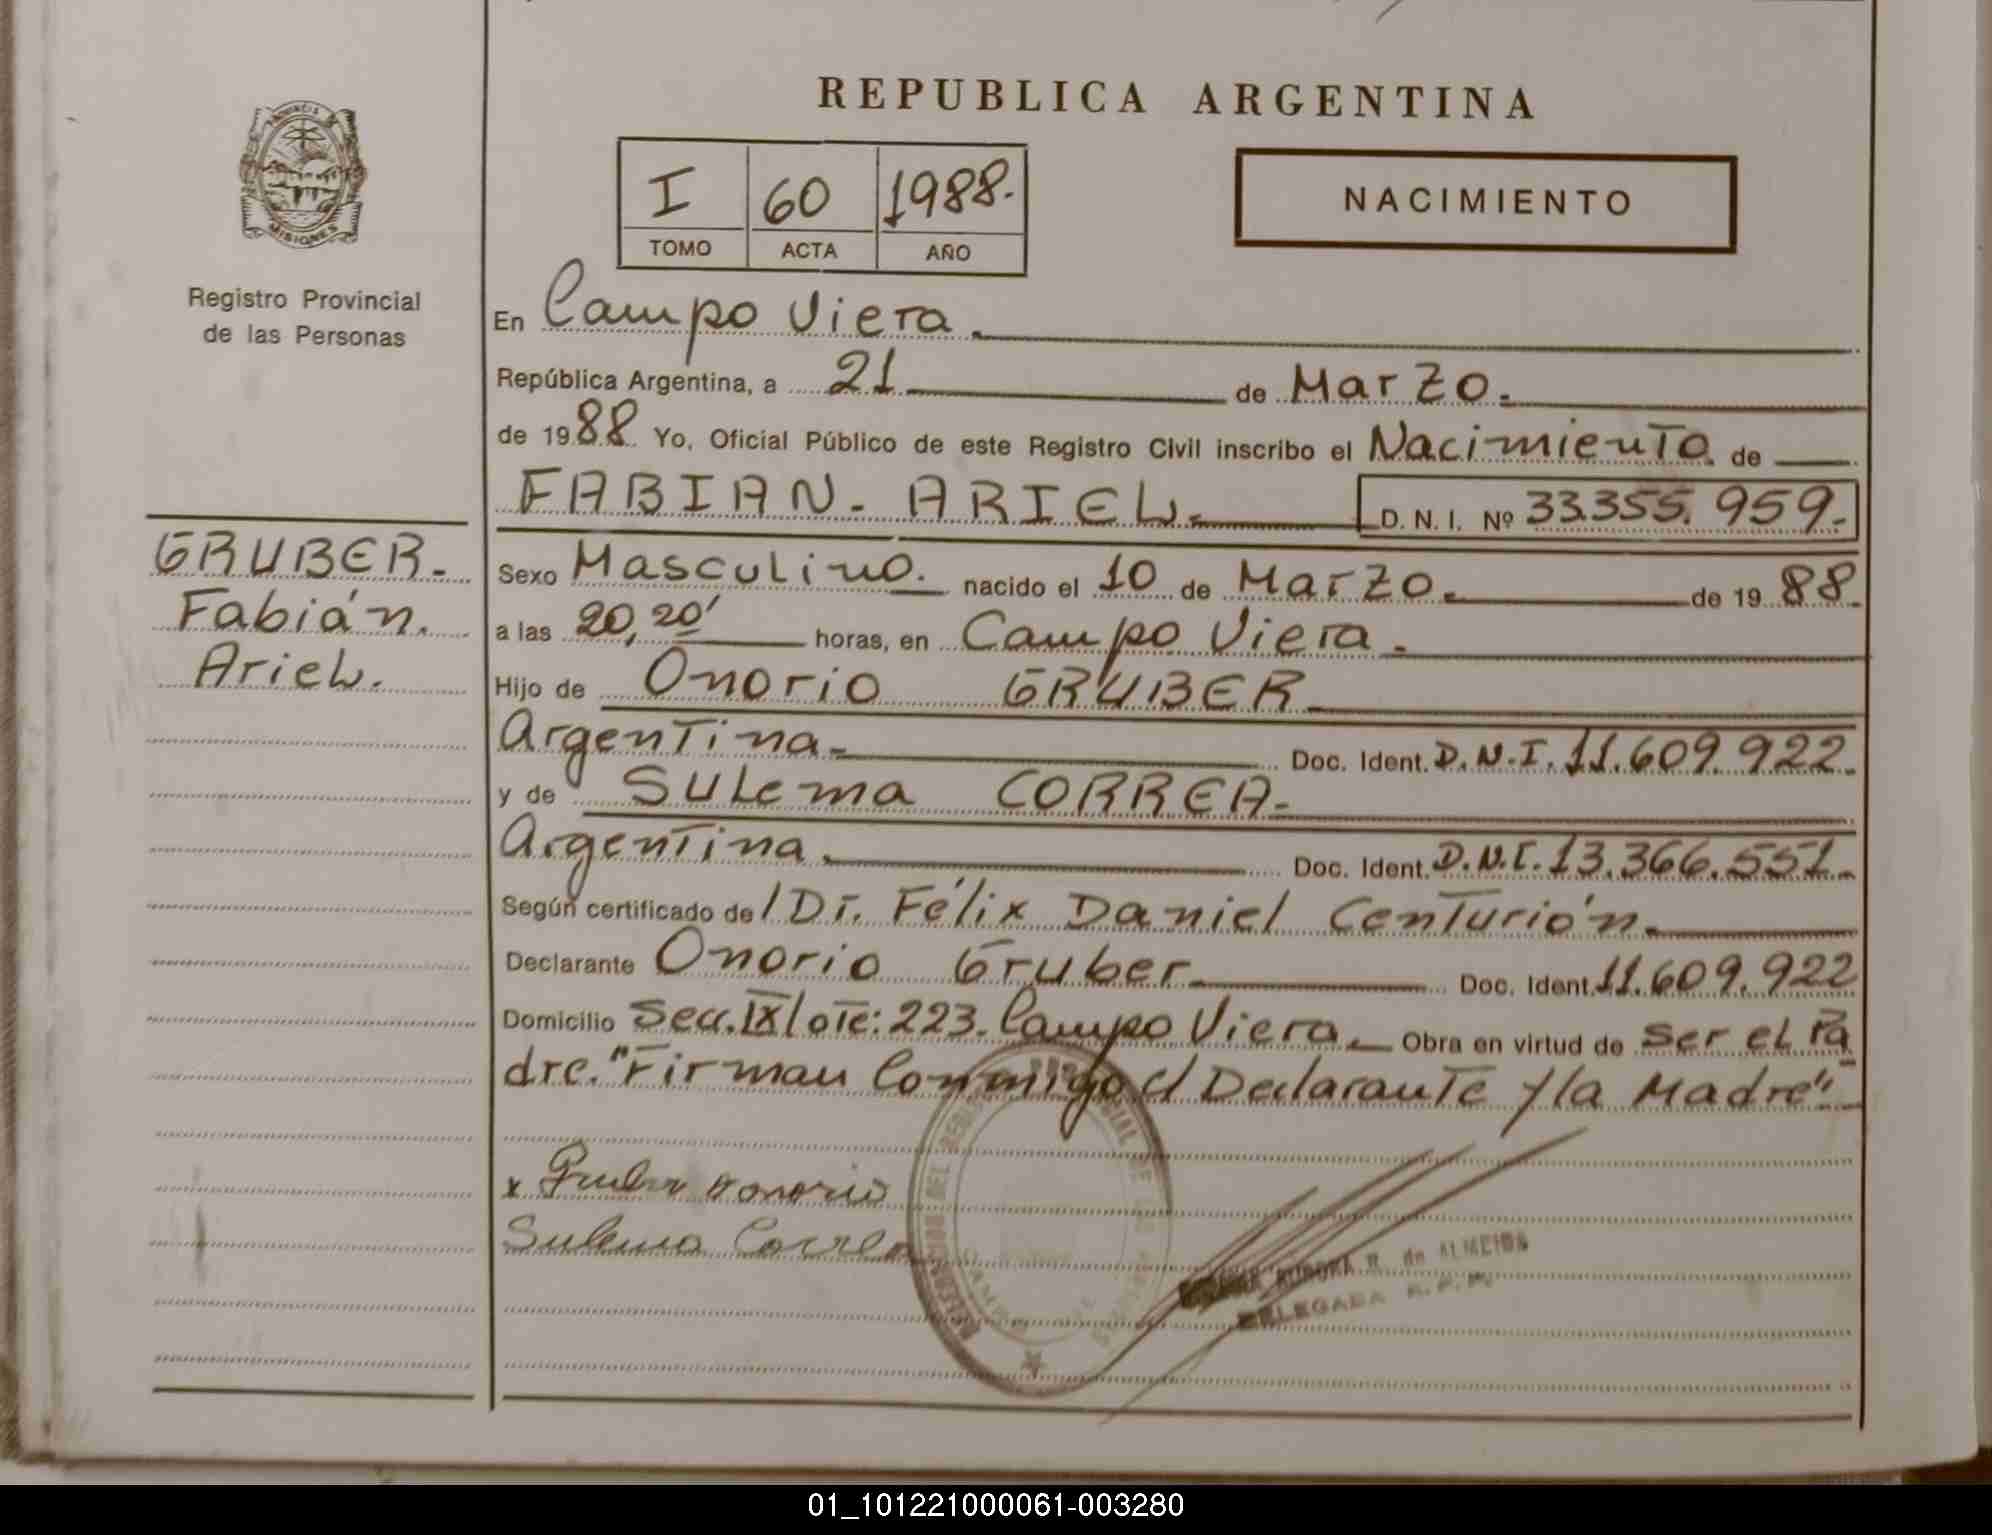 REPUBLICA ARGENTINA
I 60 1988.
TOMO ACTA AÑO
NACIMIENTO
PROVINCIA DE
MISIONES
Registro Provincial
de las Personas
GRUBER.
Fabián.
Ariel.
En Campo Viera.
República Argentina, a 21 de Marzo.
de 1988 Yo, Oficial Público de este Registro Civil inscribo el Nacimiento de
FABIAN. ARIEL. D. N. I. Nº 33.355.959.
Sexo Masculino. nacido el 10 de Marzo. de 1988.
a las 20,20' horas, en Campo Viera.
Hijo de Onorio GRUBER
Argentina. Doc. Ident. D.N.I. 11.609.922.
y de Sulema CORREA.
Argentina. Doc. Ident. D.N.I. 13.366.551.
Según certificado de/ Dr. Félix Daniel Centurión.
Declarante Onorio Gruber Doc. Ident. 11.609.922
Domicilio Secc. IX lote: 223. Campo Viera. Obra en virtud de ser el Pa
dre. "Firman Conmigo el Declarante y la Madre"
x Gruber Onorio
Sulema Correa
AURORA R. de ALMEIDA
DELEGADA R. P. P.
01_101221000061-003280